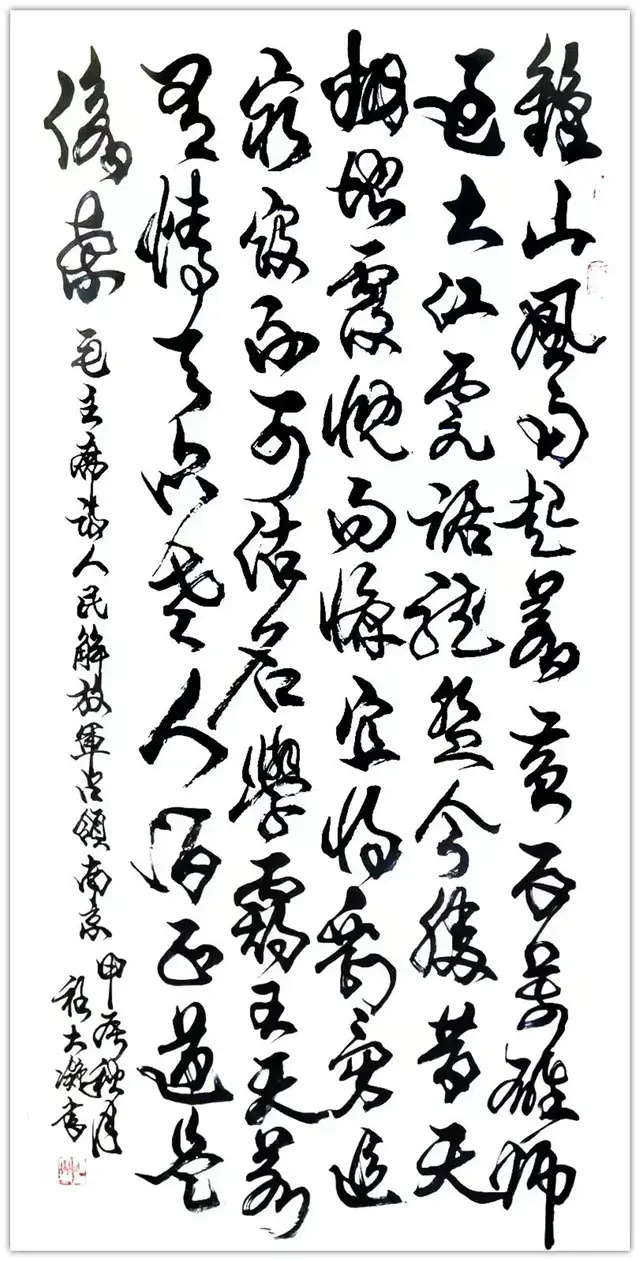 鍾山風雨起蒼黃百萬雄師
過大江虎踞龍盤今勝昔天
翻地覆慨而慷宜將剩勇追
窮寇不可沽名學霸王天若
有情天亦老人間正道是
滄桑 毛主席詩人民解放軍占領南京
甲辰秋月
大書